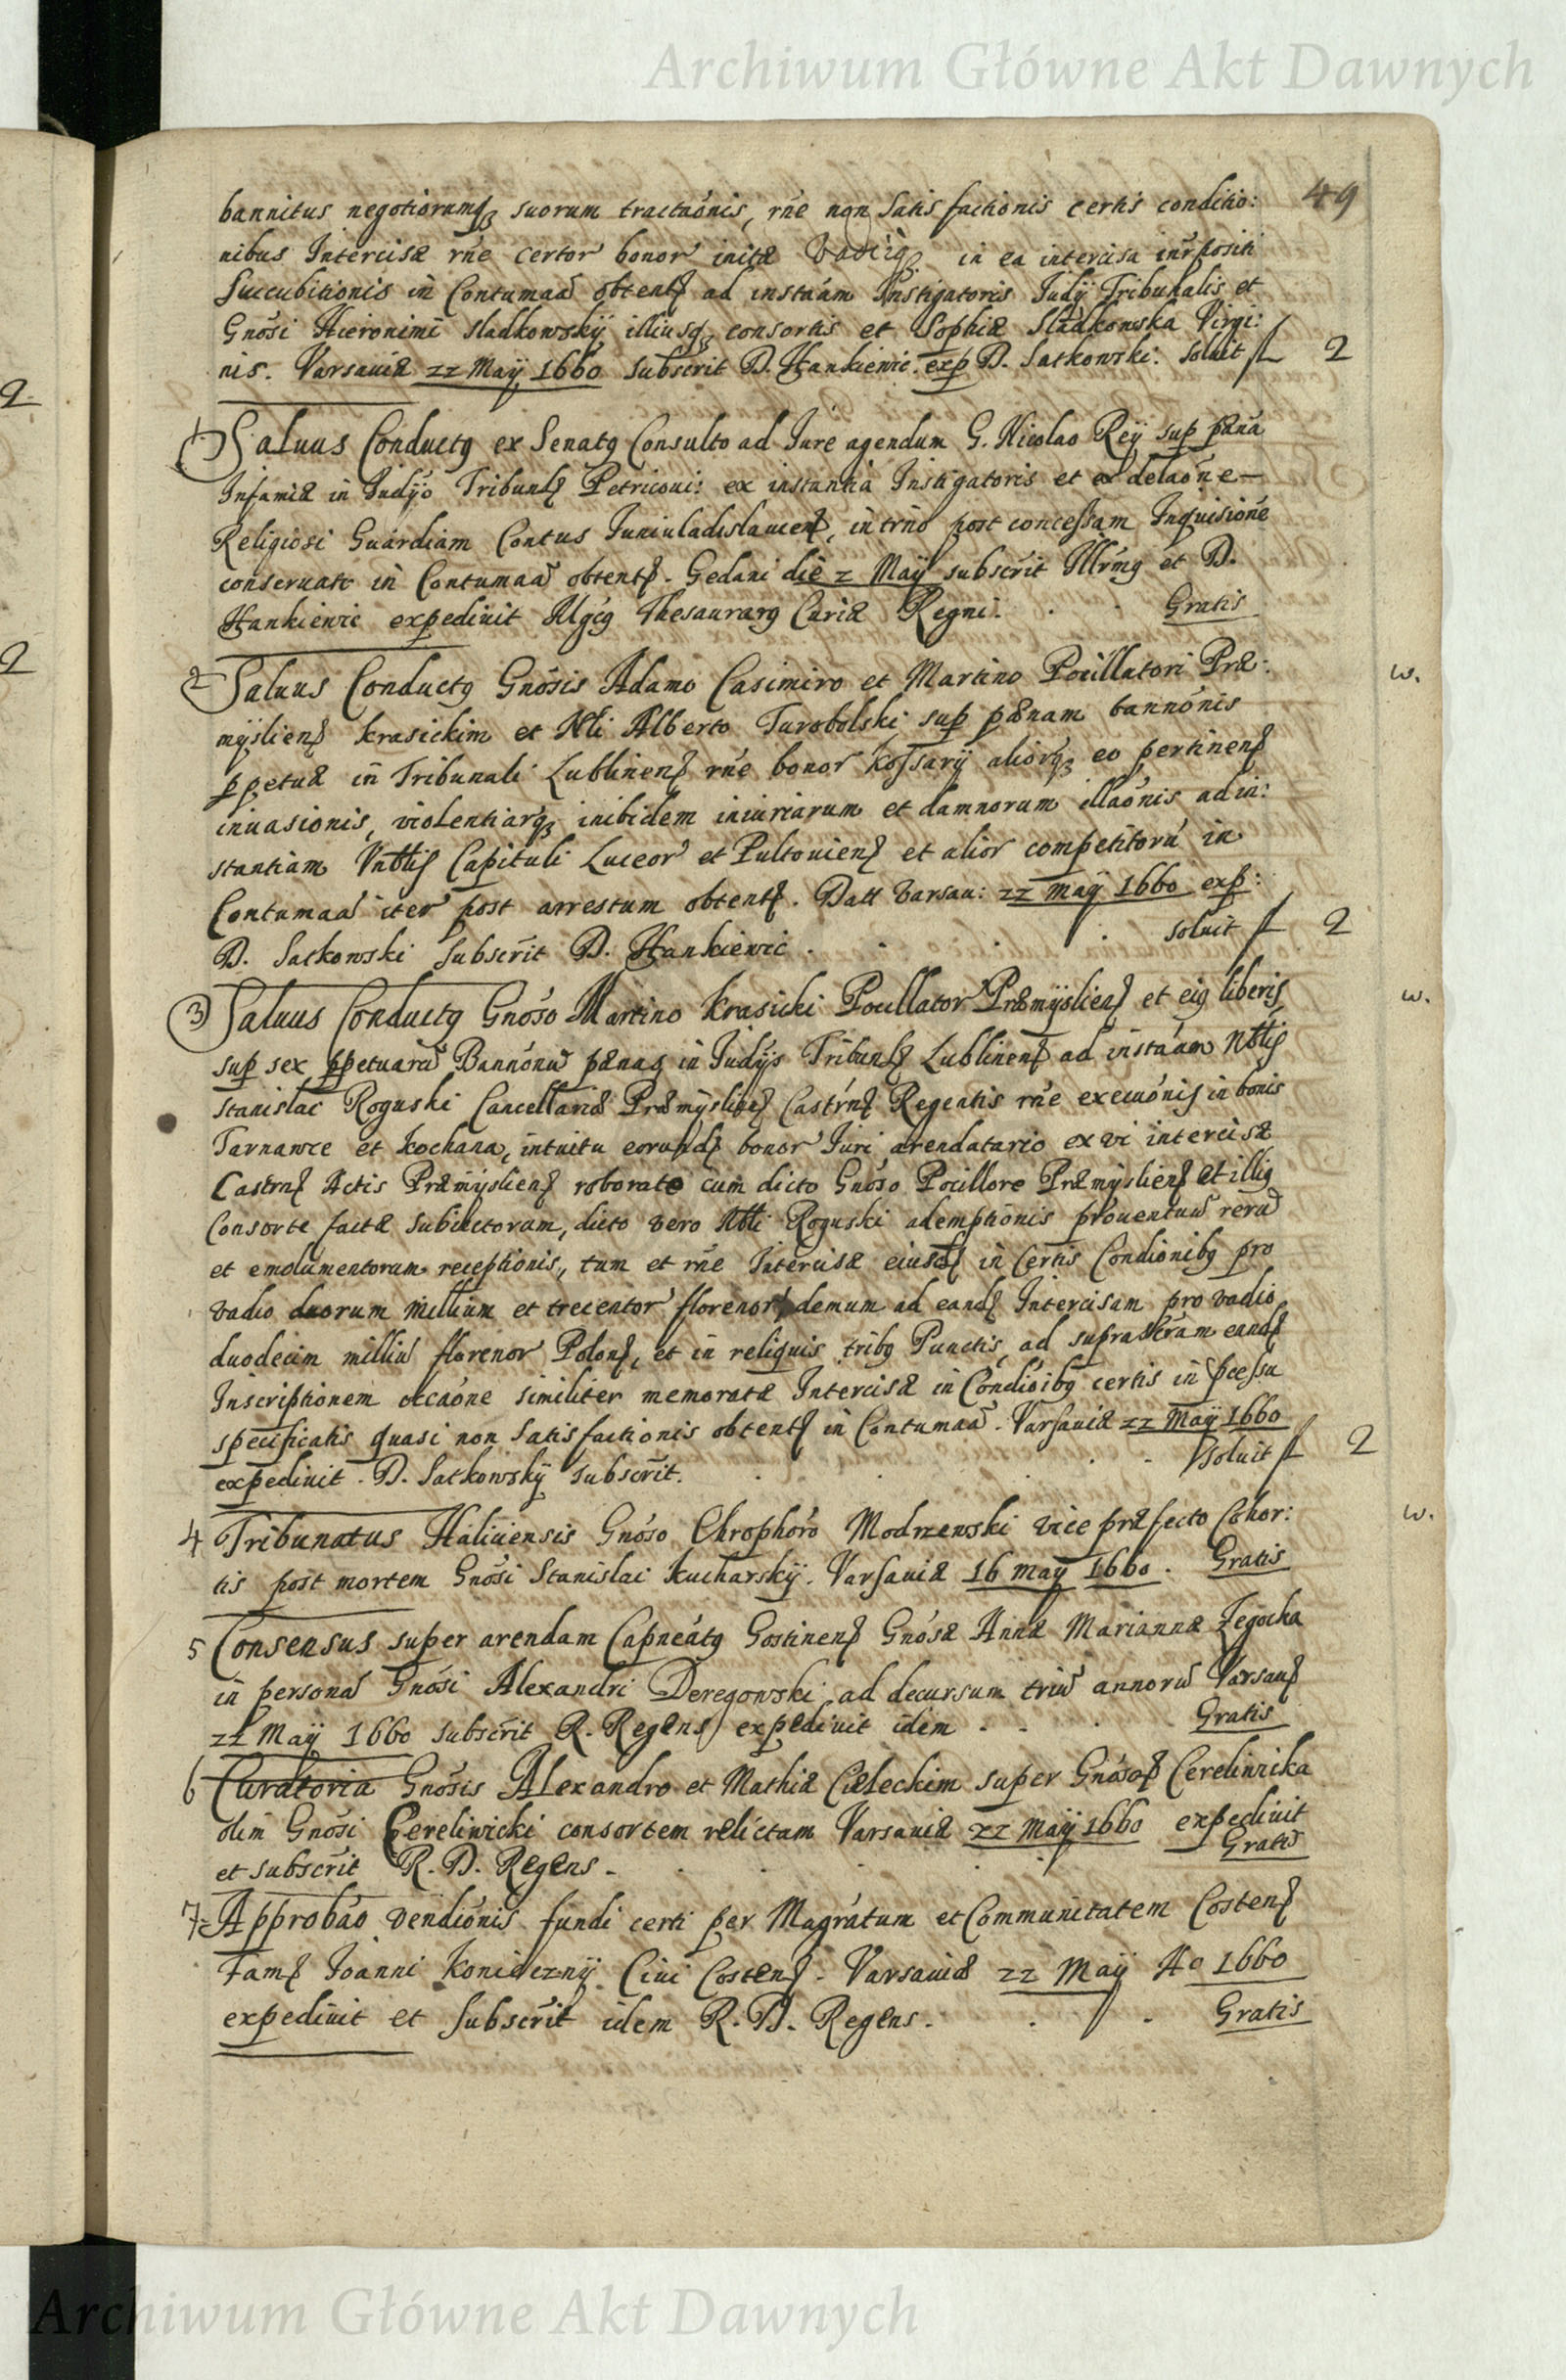 Archiwum Główne Akt Dawnych
49
bannitus negotiorumq suorum tractaónis, rñe non Satisfactionis certis conditio:
nibus Intercisæ rñe certor bonor initæ vadiiq in ea intercisa inrpositi
Succubitionis in Contumaã obtent ad instãam Instigatoris Judÿ Tribunalis et
Gnósi Hieronimi Sladkowskÿ illiusq consortis et Sophiæ Sladkowska Virgi:
nis. Varsaviæ 22 Maÿ 1660 subscrit D. Hankiewic. exp D. Satkowski. soluit f 2
1 Saluus Conductq ex Senatq Consulto ad Jure agendum G. Nicolao Reÿ sup pæna
Infamiæ in Judÿo Tribunl Petricoui: ex instantia Instigatoris et ex delaóne
Religiosi Guardiam Contus Juniuladislauien, in trño post concessam Inquisioné
conseruate in Contumaã obtent. Gedani die 2 Maÿ subscrit Illrmq et D.
Hankiewic expediuit Mgcq Thesaurarq Curiæ Regni. Gratis
2 Saluus Conductq Gnósis Adamo Casimiro et Martino Pocillatori Præ: w.
mÿslien krasickim et Nli Alberto Turobolski sup pænam bannónis
ppetuæ in Tribunali Lublinen rñe bonor Kossarÿ aliorq eo pertinen
inuasionis, violentiarq inibidem iniuriarum et damnorum illaónis ad in:
stantiam Vnblis Capituli Luceor et Pultouien et alior competitorũ in
Contumaã iter post arrestum obtent. Datt Varsau: 22 maÿ 1660 exp:
D. Satkowski Subscrit D. Hankiewic . . . soluit f 2
3 Saluus Conductq Gnóso Martino Krasicki Pocillator Præmÿslien et eiq liberis, w.
sup sex ppetuarũ Bannónũ pænas in Judÿs Tribunl Lublinen ad instãam Nblis
Stanislai Roguski Cancellariæ Præmÿslien Castrn Regentis rñe execuónis in bonis
Tarnawce et Kochana, intuitu eorund bonor Juri arendatario ex vi intercisæ
Castrn Actis Præmÿslien roboratæ cum dicto Gnóso Pocillore Præmÿslien et illiq
Consorte factæ subiectorum, dicto vero Nbli Roguski ademptionis prouentuũ rerũ
et emolumentorum receptionis, tum et rñe Intercisæ eiusd in Certis Condionibq pro
vadio duorum millium et trecentor florenor demum ad eand Intercisam pro vadio
duodecim milliũ florenor Polon, et in reliquis tribq Punctis, ad suprascram eand
Inscriptionem occaóne similiter memoratæ Intercisæ in Condióibq certis in pcessu
specificatis quasi non Satisfactionis obtent in Contumaã. Varsauiæ 22 Maÿ 1660
expediuit. D. Satkowskÿ subscrit. . . . soluit f 2
4 Tribunatus Haliciensis Gnóso Chrophoro Modrzewski vice præfecto Cohor: w.
tis post mortem Gnósi Stanislai Kucharskÿ. Varsauiæ 16 maÿ 1660. Gratis
5 Consensus super arendam Capneátq Gostinen Gnósæ Annæ Mariannæ Zegocka
in personã Gnósi Alexandri Deregowski ad decursum triũ annorũ Varsau
22 Maÿ 1660 subscrit R. Regens expediuit idem . . . Gratis
6 Curatoria Gnósis Alexandro et Mathiæ Cieleckim super Gnósa Cerelinicka
olim Gnósi Cerelinicki consortem relictam Varsauiæ 22 Maÿ 1660 expediuit
et subscrit R. D. Regens. Gratis
7 Approbão vendiónis fundi certi per Magratum et Communitatem Costen
Fam Joanni Koniecznÿ Ciui Costen. Varsauiæ 22 Maÿ Ao 1660
expediuit et Subscrit idem R. D. Regens. . . Gratis
2
2
Archiwum Główne Akt Dawnych